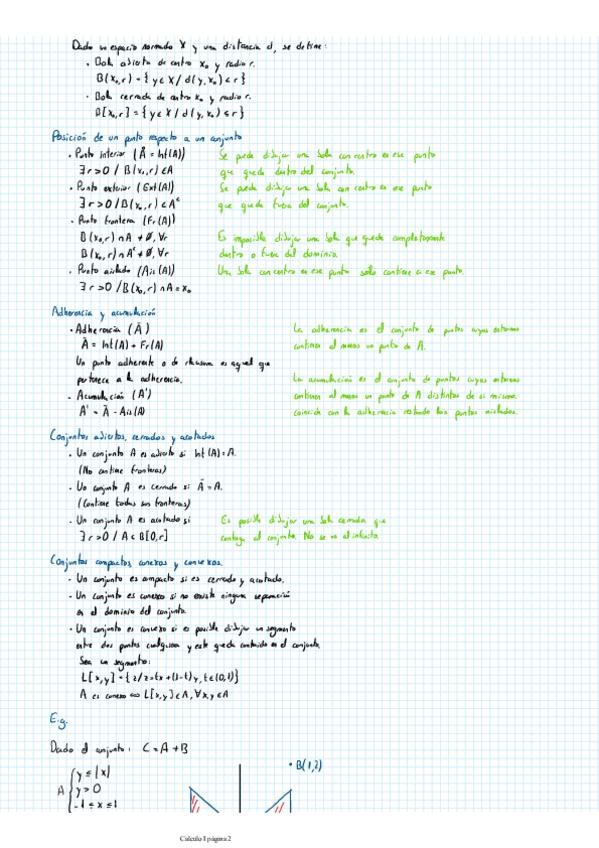 Dado un espacio normado X y una distancia d, se define:
· Bola abierta de centro x₀ y radio r.
B(x₀,r) = {y∈X / d(y,x₀)<r}
· Bola cerrada de centro x₀ y radio r.
B[x₀,r] = {y∈X / d(y,x₀)≤r}
Posición de un punto respecto a un conjunto
· Punto interior (Å = Int(A))
Se puede dibujar una bola con centro en ese punto
∃r>0 / B(x₀,r)⊂A
que quede dentro del conjunto.
· Punto exterior (Ext(A))
Se puede dibujar una bola con centro en ese punto
∃r>0 / B(x₀,r)⊂Aᶜ
que quede fuera del conjunto.
· Punto frontera (Fr(A))
B(x₀,r)∩A ≠ Ø, ∀r
Es imposible dibujar una bola que quede completamente
B(x₀,r)∩Aᶜ ≠ Ø, ∀r
dentro o fuera del dominio.
· Punto aislado (Ais(A))
Una bola con centro en ese punto solo contiene a ese punto.
∃r>0 / B(x₀,r)∩A = x₀
Adherencia y acumulación
· Adherencia (Ā)
La adherencia es el conjunto de puntos cuyos entornos
Ā = Int(A) + Fr(A)
contienen al menos un punto de A.
Un punto adherente o de clausura es aquel que
pertenece a la adherencia.
La acumulación es el conjunto de puntos cuyos entornos
· Acumulación (A')
contienen al menos un punto de A distintos de si mismo.
A' = Ā - Ais(A)
coincide con la adherencia restando los puntos aislados.
Conjuntos abiertos, cerrados y acotados
· Un conjunto A es abierto si Int(A) = A.
(No contiene fronteras)
· Un conjunto A es cerrado si Ā = A.
(Contiene todas sus fronteras)
· Un conjunto A es acotado si
Es posible dibujar una bola cerrada que
∃r>0 / A⊂B[0,r]
contenga al conjunto. No se va al infinito.
Conjuntos compactos, conexos y convexos.
· Un conjunto es compacto si es cerrado y acotado.
· Un conjunto es conexo si no existe ninguna separación
en el dominio del conjunto.
· Un conjunto es convexo si es posible dibujar un segmento
entre dos puntos cualquiera y este quede contenido en el conjunto.
Sea un segmento:
L[x,y] = {z/z=tx+(1-t)y, t∈(0,1)}
A es convexo ⇔ L[x,y]∈A, ∀x,y∈A
E.g.
Dado el conjunto: C = A + B
· B(1,2)
y ≤ |x|
A { y > 0
-1 ≤ x ≤ 1
Calculo I página 2